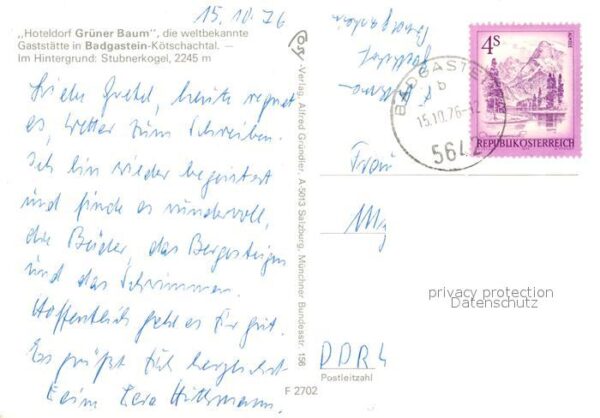 15.10.76
„Hoteldorf Grüner Baum", die weltbekannte
Gaststätte in Badgastein-Kötschachtal. —
Im Hintergrund: Stubnerkogel, 2245 m
Liebe Gretel, heute regnet
es, Wetter zum Schreiben.
Ich bin wieder begeistert
und finde es wundervoll,
die Bäder, das Bergsteigen
und das Schwimmen.
Hoffentlich geht es Dir gut.
Es grüßt Dich herzlichst
Deine
Öst.-Verlag, Alfred Gründler, A-5013 Salzburg, Münchner Bundesstr. 156
F 2702
Badgastein
4S
REPUBLIK ÖSTERREICH
BADGASTEIN
b
15.10.76-
5642
Frau
privacy protection
Datenschutz
DDR
Postleitzahl